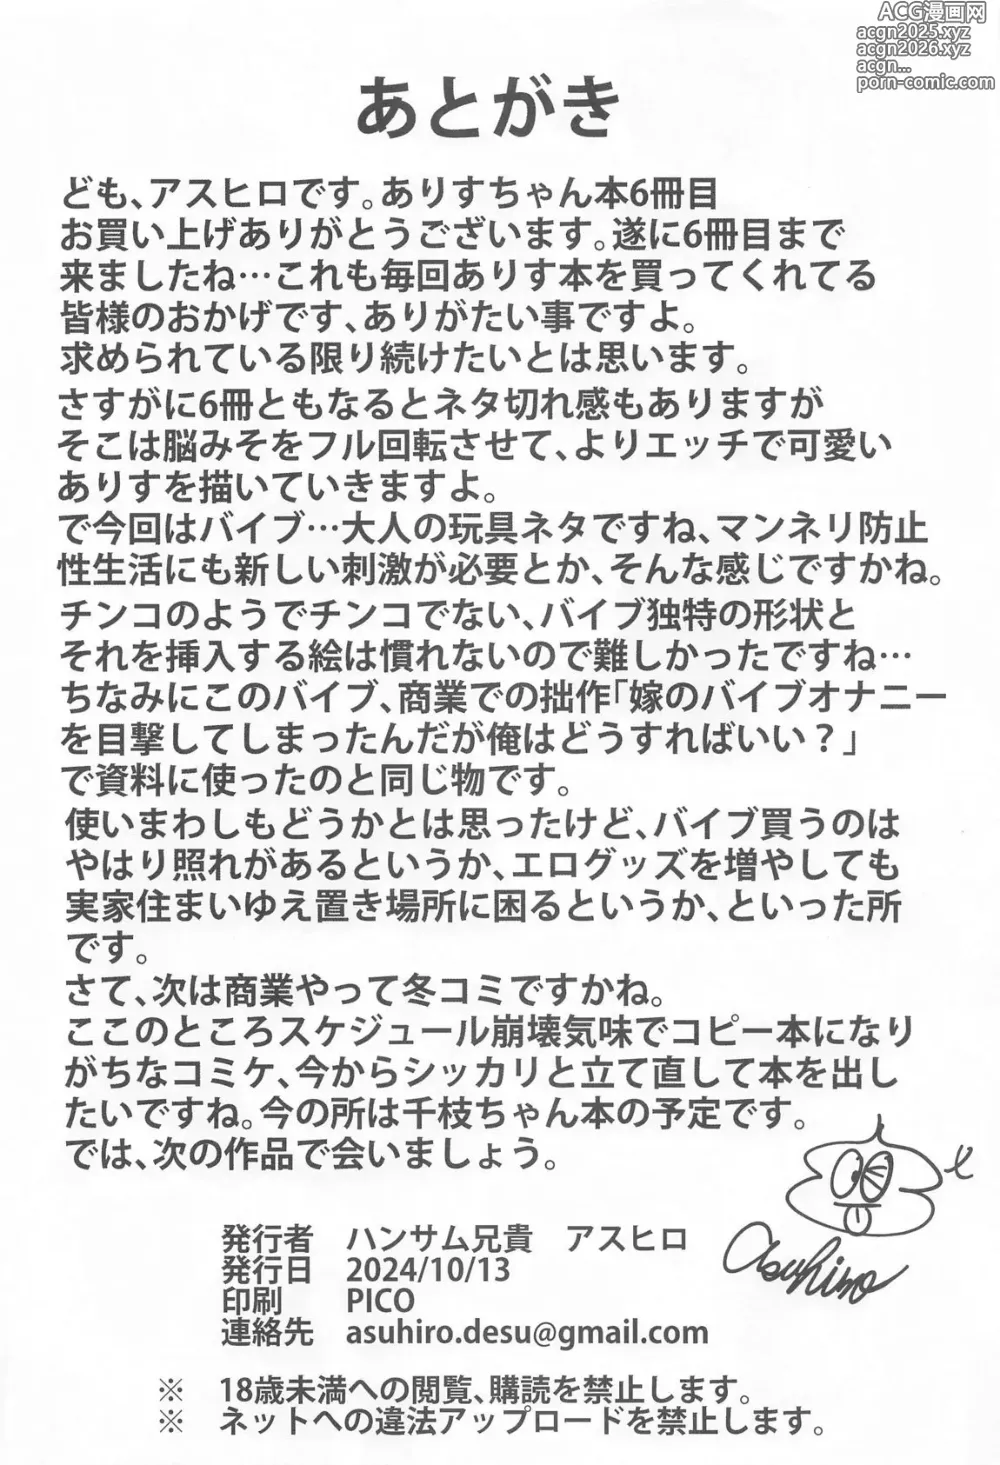 ACG漫画网
acgn2025.xyz
acgn2026.xyz
acgn...
porn-comic.com
あとがき
ども、アスヒロです。ありすちゃん本6冊目
お買い上げありがとうございます。遂に6冊目まで
来ましたね…これも毎回ありす本を買ってくれてる
皆様のおかげです、ありがたい事ですよ。
求められている限り続けたいとは思います。
さすがに6冊ともなるとネタ切れ感もありますが
そこは脳みそをフル回転させて、よりエッチで可愛い
ありすを描いていきますよ。
で今回はバイブ…大人の玩具ネタですね、マンネリ防止
性生活にも新しい刺激が必要とか、そんな感じですかね。
チンコのようでチンコでない、バイブ独特の形状と
それを挿入する絵は慣れないので難しかったですね…
ちなみにこのバイブ、商業での拙作「嫁のバイブオナニー
を目撃してしまったんだが俺はどうすればいい？」
で資料に使ったのと同じ物です。
使いまわしもどうかとは思ったけど、バイブ買うのは
やはり照れがあるというか、エログッズを増やしても
実家住まいゆえ置き場所に困るというか、といった所
です。
さて、次は商業やって冬コミですかね。
ここのところスケジュール崩壊気味でコピー本になり
がちなコミケ、今からシッカリと立て直して本を出し
たいですね。今の所は千枝ちゃん本の予定です。
では、次の作品で会いましょう。
asuhiro
発行者 ハンサム兄貴 アスヒロ
発行日 2024/10/13
印刷 PICO
連絡先 asuhiro.desu@gmail.com
※ 18歳未満への閲覧、購読を禁止します。
※ ネットへの違法アップロードを禁止します。